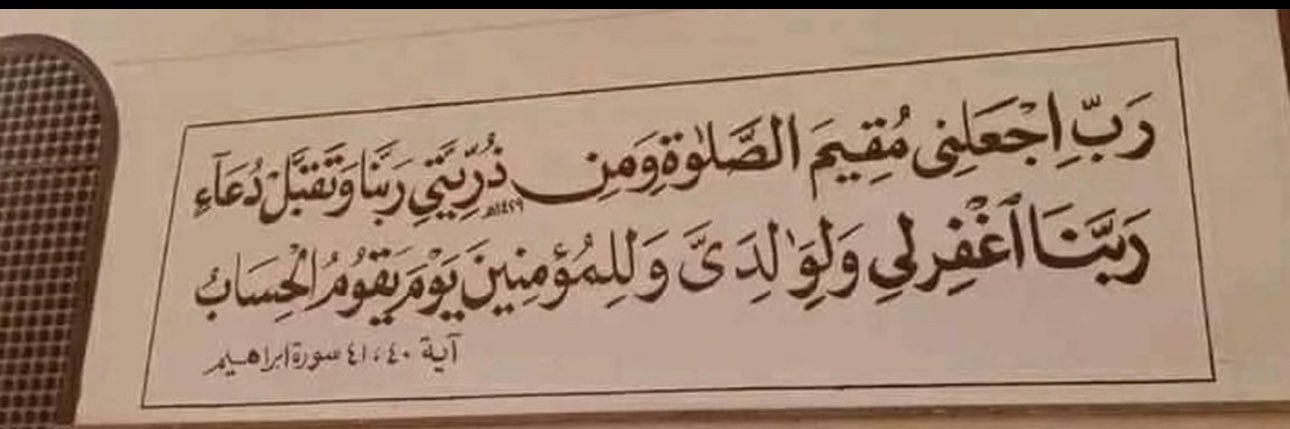 رَبِّ اِجْعَلْنِى مُقِيمَ الصَّلٰوةِ وَمِن ذُرِّيَّتِي رَبَّنَا وَتَقَبَّلْ دُعَآءِ
١٤٢٩هـ
رَبَّنَا ٱغْفِرْ لِي وَلِوَٰلِدَىَّ وَلِلْمُؤْمِنِينَ يَوْمَ يَقُومُ الْحِسَابُ
آية ٤٠ ، ٤١ سورة ابراهيم